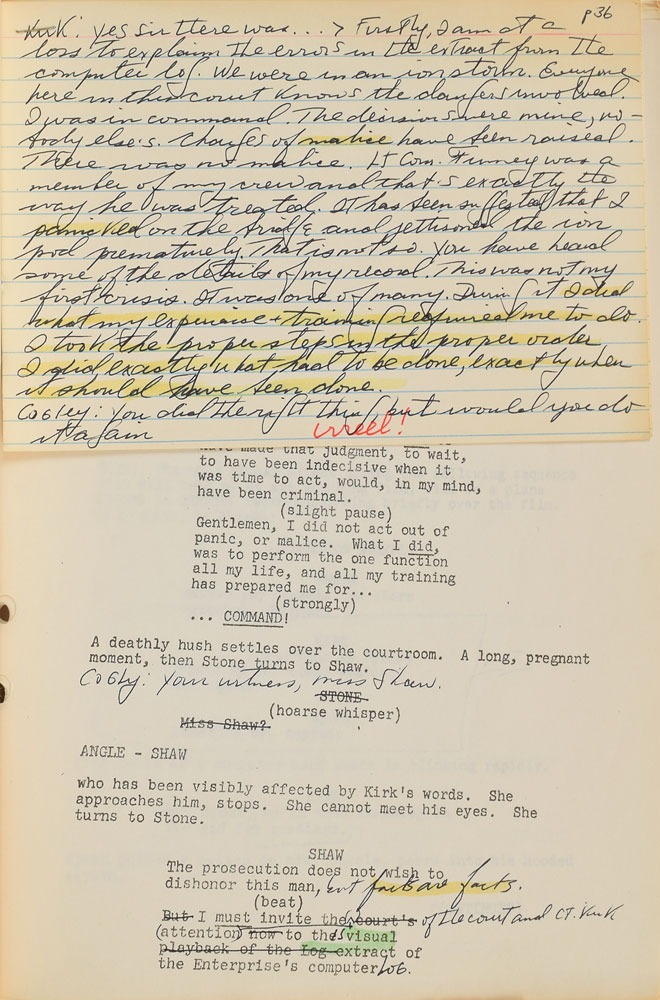 p36
Kirk: yes sir there was... > Firstly, I am at a
loss to explain the errors in the extract from the
computer log. We were in an ion storm. Everyone
here in this court knows the dangers involved.
I was in command. The decisions were mine, no-
body else's. Charges of malice have been raised.
There was no malice. Lt Com. Finney was a
member of my crew and that's exactly the
way he was treated. It has been suggested that I
panicked on the bridge and jettisoned the ion
pod prematurely. That is not so. You have heard
some of the details of my record. This was not my
first crisis. It was one of many. During it I did
what my experience + training required me to do.
I took the proper steps in the proper order.
I did exactly what had to be done, exactly when
it should have been done.
Cogley: You did the right thing, but would you do
it again
have made that judgment, to wait,
to have been indecisive when it
was time to act, would, in my mind,
have been criminal.
(slight pause)
Gentlemen, I did not act out of
panic, or malice. What I did,
was to perform the one function
all my life, and all my training
has prepared me for...
(strongly)
... COMMAND!
A deathly hush settles over the courtroom. A long, pregnant
moment, then Stone turns to Shaw.
Cogly: Your witness, miss Shaw.
STONE
(hoarse whisper)
Miss Shaw?
ANGLE - SHAW
who has been visibly affected by Kirk's words. She
approaches him, stops. She cannot meet his eyes. She
turns to Stone.
SHAW
The prosecution does not wish to
dishonor this man, but facts are facts.
(beat)
But I must invite the court's of the court and CT. Kirk
(attention) now to the visual
playback of the Log extract of
the Enterprise's computer log.